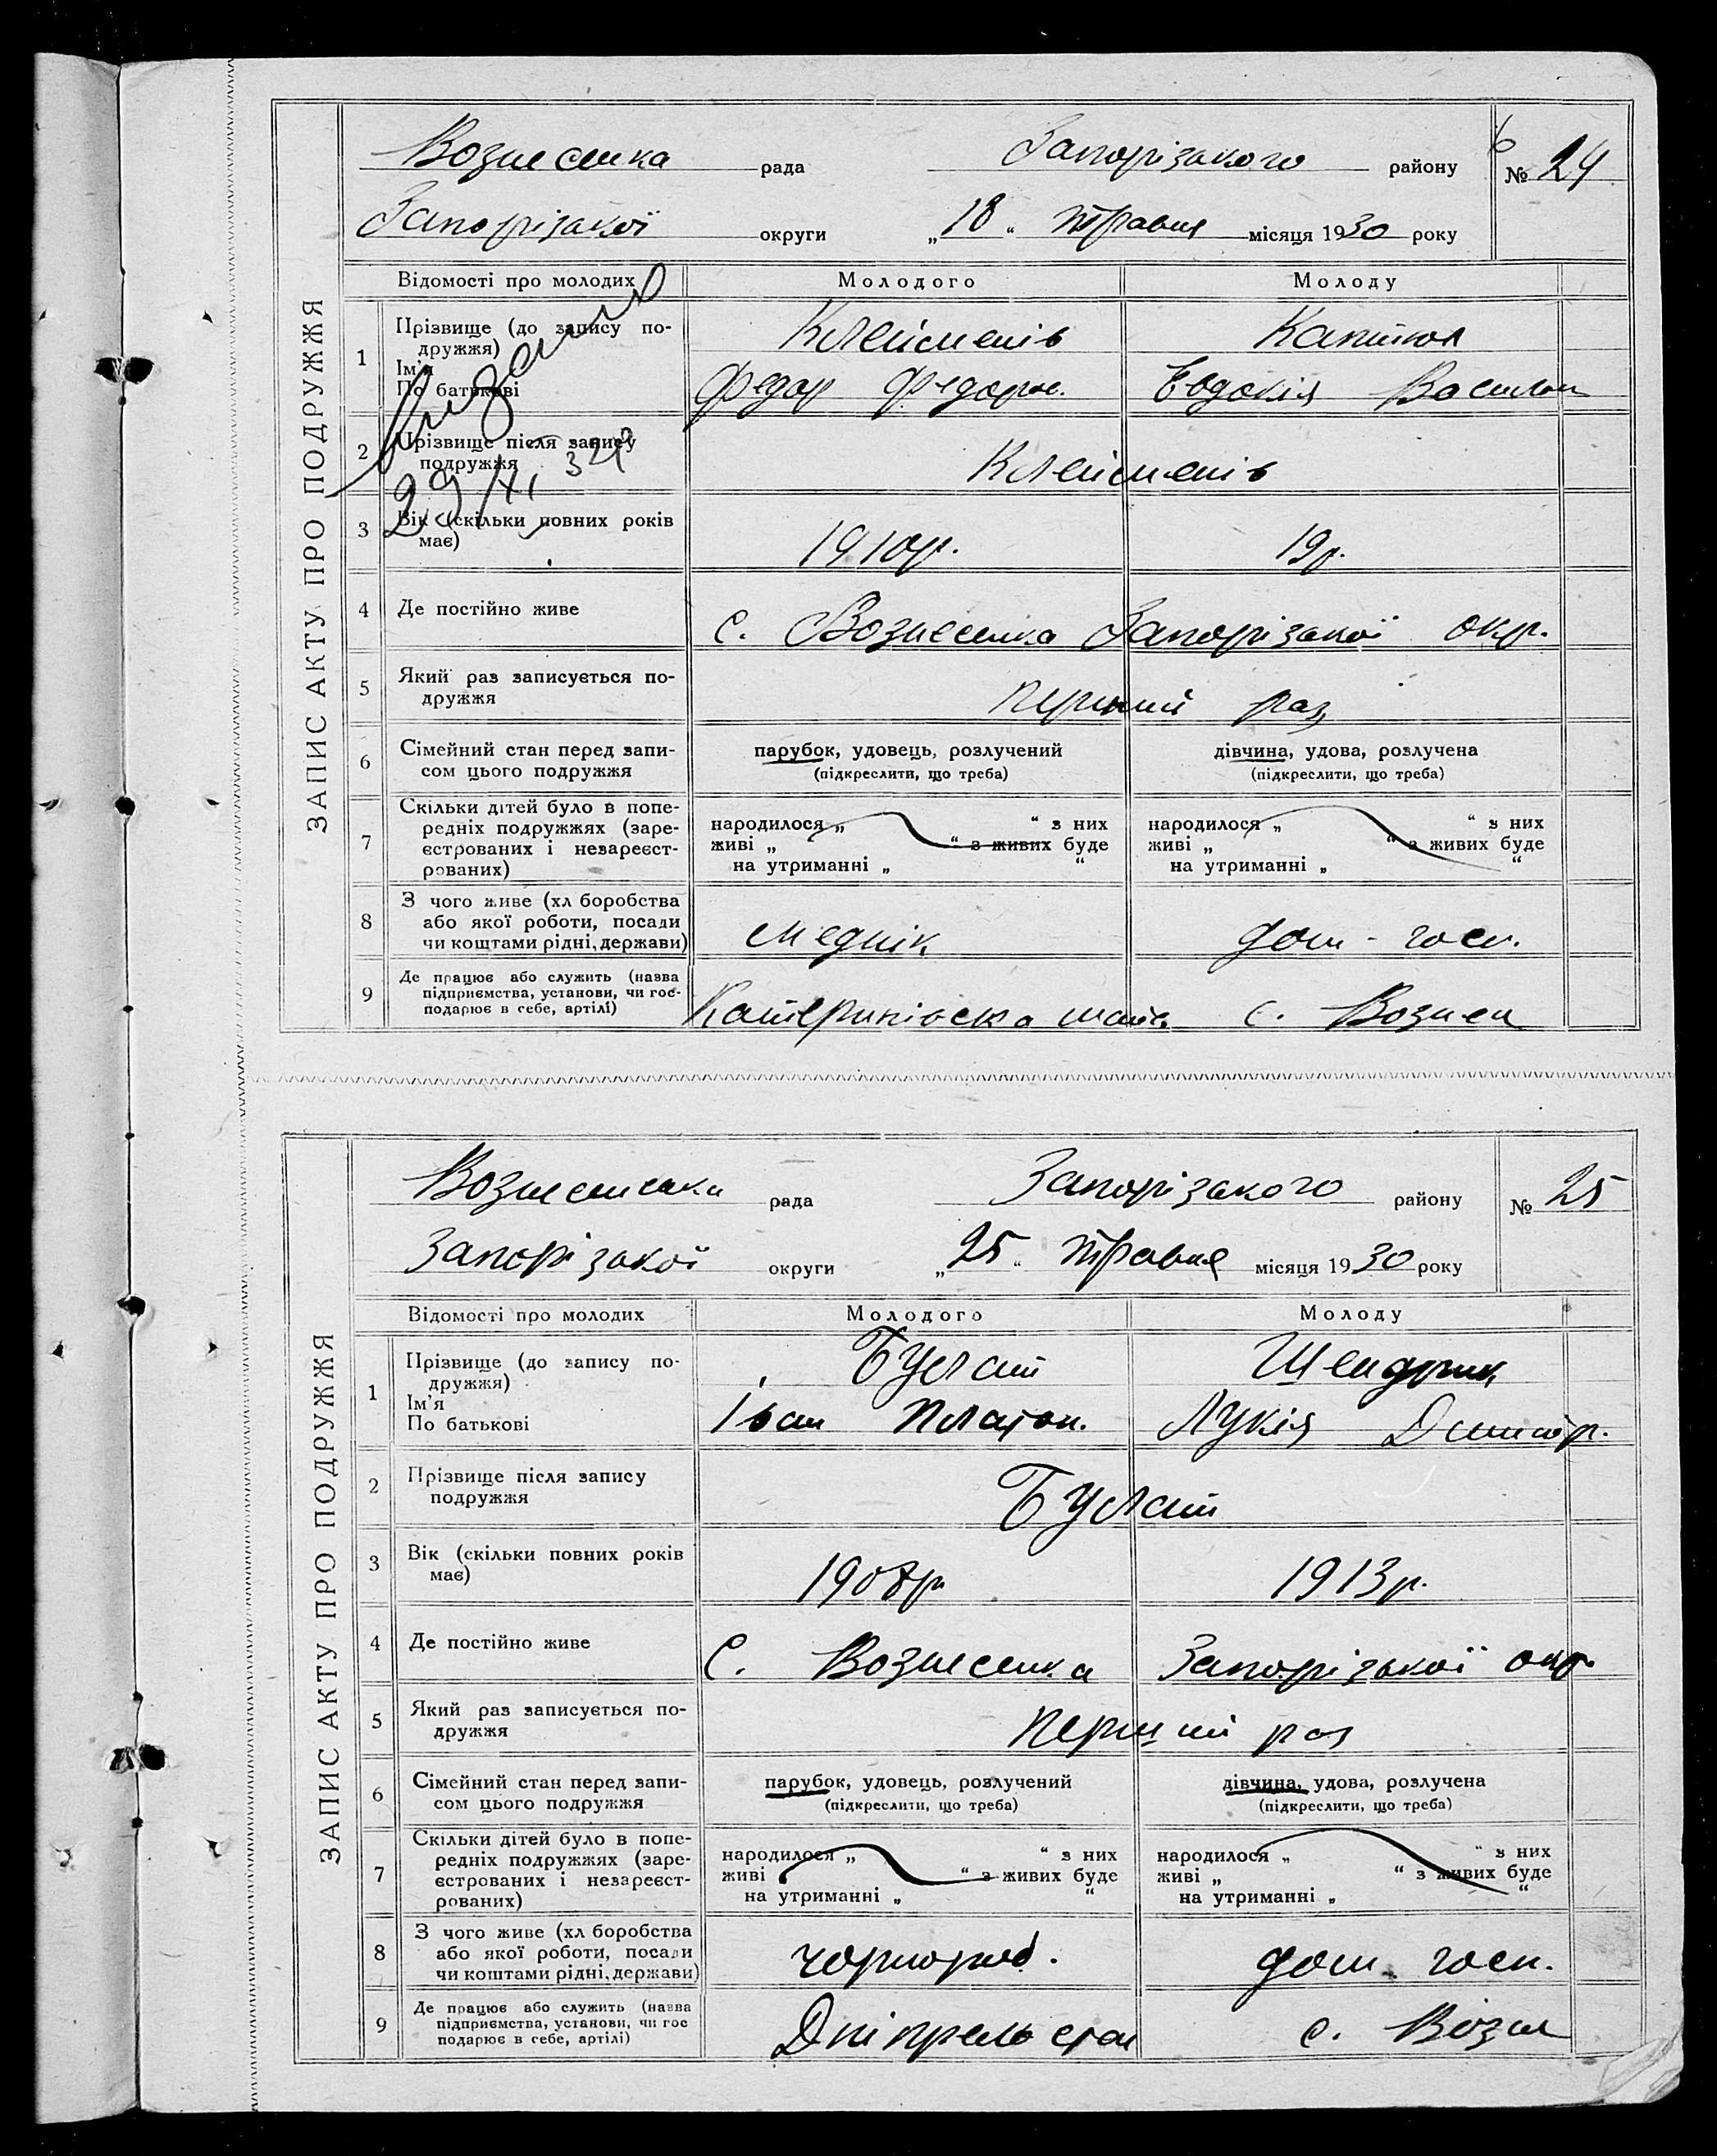 ЗАПИС АКТУ ПРО ПОДРУЖЖЯ
Вознесенка рада Запорізького району № 24
Запорізької округи „18“ травня місяця 1930 року
Відомості про молодих Молодого Молоду
1 Прізвище (до запису по-
дружжя) Клейменів
Ім'я
По батькові Федор Федоров. Евдокія Васил
2 Прізвище після запису
подружжя Клейменів
29/XI 32р
3 Вік (скільки повних років
має) 1910р. 19р.
4 Де постійно живе с. Вознесенка Запорізької окр.
5 Який раз записується по-
дружжя перший раз
6 Сімейний стан перед запи-
сом цього подружжя парубок, удовець, розлучений дівчина, удова, розлучена
(підкреслити, що треба) (підкреслити, що треба)
7 Скільки дітей було в попе-
редніх подружжях (заре-
єстрованих і незареєст-
рованих)
народилося „ “ з них народилося „ “ з них
живі „ “ з живих буде живі „ “ з живих буде
на утриманні „ “ на утриманні „ “
8 З чого живе (хл боробства
або якої роботи, посади
чи коштами рідні, держави) медник дом-госп.
9 Де працює або служить (назва
підприємства, установи, чи гос-
подарює в себе, артілі) Катеринівська с. Вознесен
ЗАПИС АКТУ ПРО ПОДРУЖЖЯ
Вознесенська рада Запорізького району № 25
Запорізької округи „25“ травня місяця 1930 року
Відомості про молодих Молодого Молоду
1 Прізвище (до запису по-
дружжя) Булат Шендрик
Ім'я
По батькові Іван Платон. Лукія Дмитр.
2 Прізвище після запису
подружжя Булат
3 Вік (скільки повних років
має) 1908р 1913р.
4 Де постійно живе С. Вознесенка Запорізької окр.
5 Який раз записується по-
дружжя перший раз
6 Сімейний стан перед запи-
сом цього подружжя парубок, удовець, розлучений дівчина, удова, розлучена
(підкреслити, що треба) (підкреслити, що треба)
7 Скільки дітей було в попе-
редніх подружжях (заре-
єстрованих і незареєст-
рованих)
народилося „ “ з них народилося „ “ з них
живі “ з живих буде живі „ “ з живих буде
на утриманні „ “ на утриманні „ “
8 З чого живе (хл боробства
або якої роботи, посади
чи коштами рідні, держави) чорнороб. дом. госп.
9 Де працює або служить (назва
підприємства, установи, чи гос
подарює в себе, артілі) Дніпрельстан с. Возн